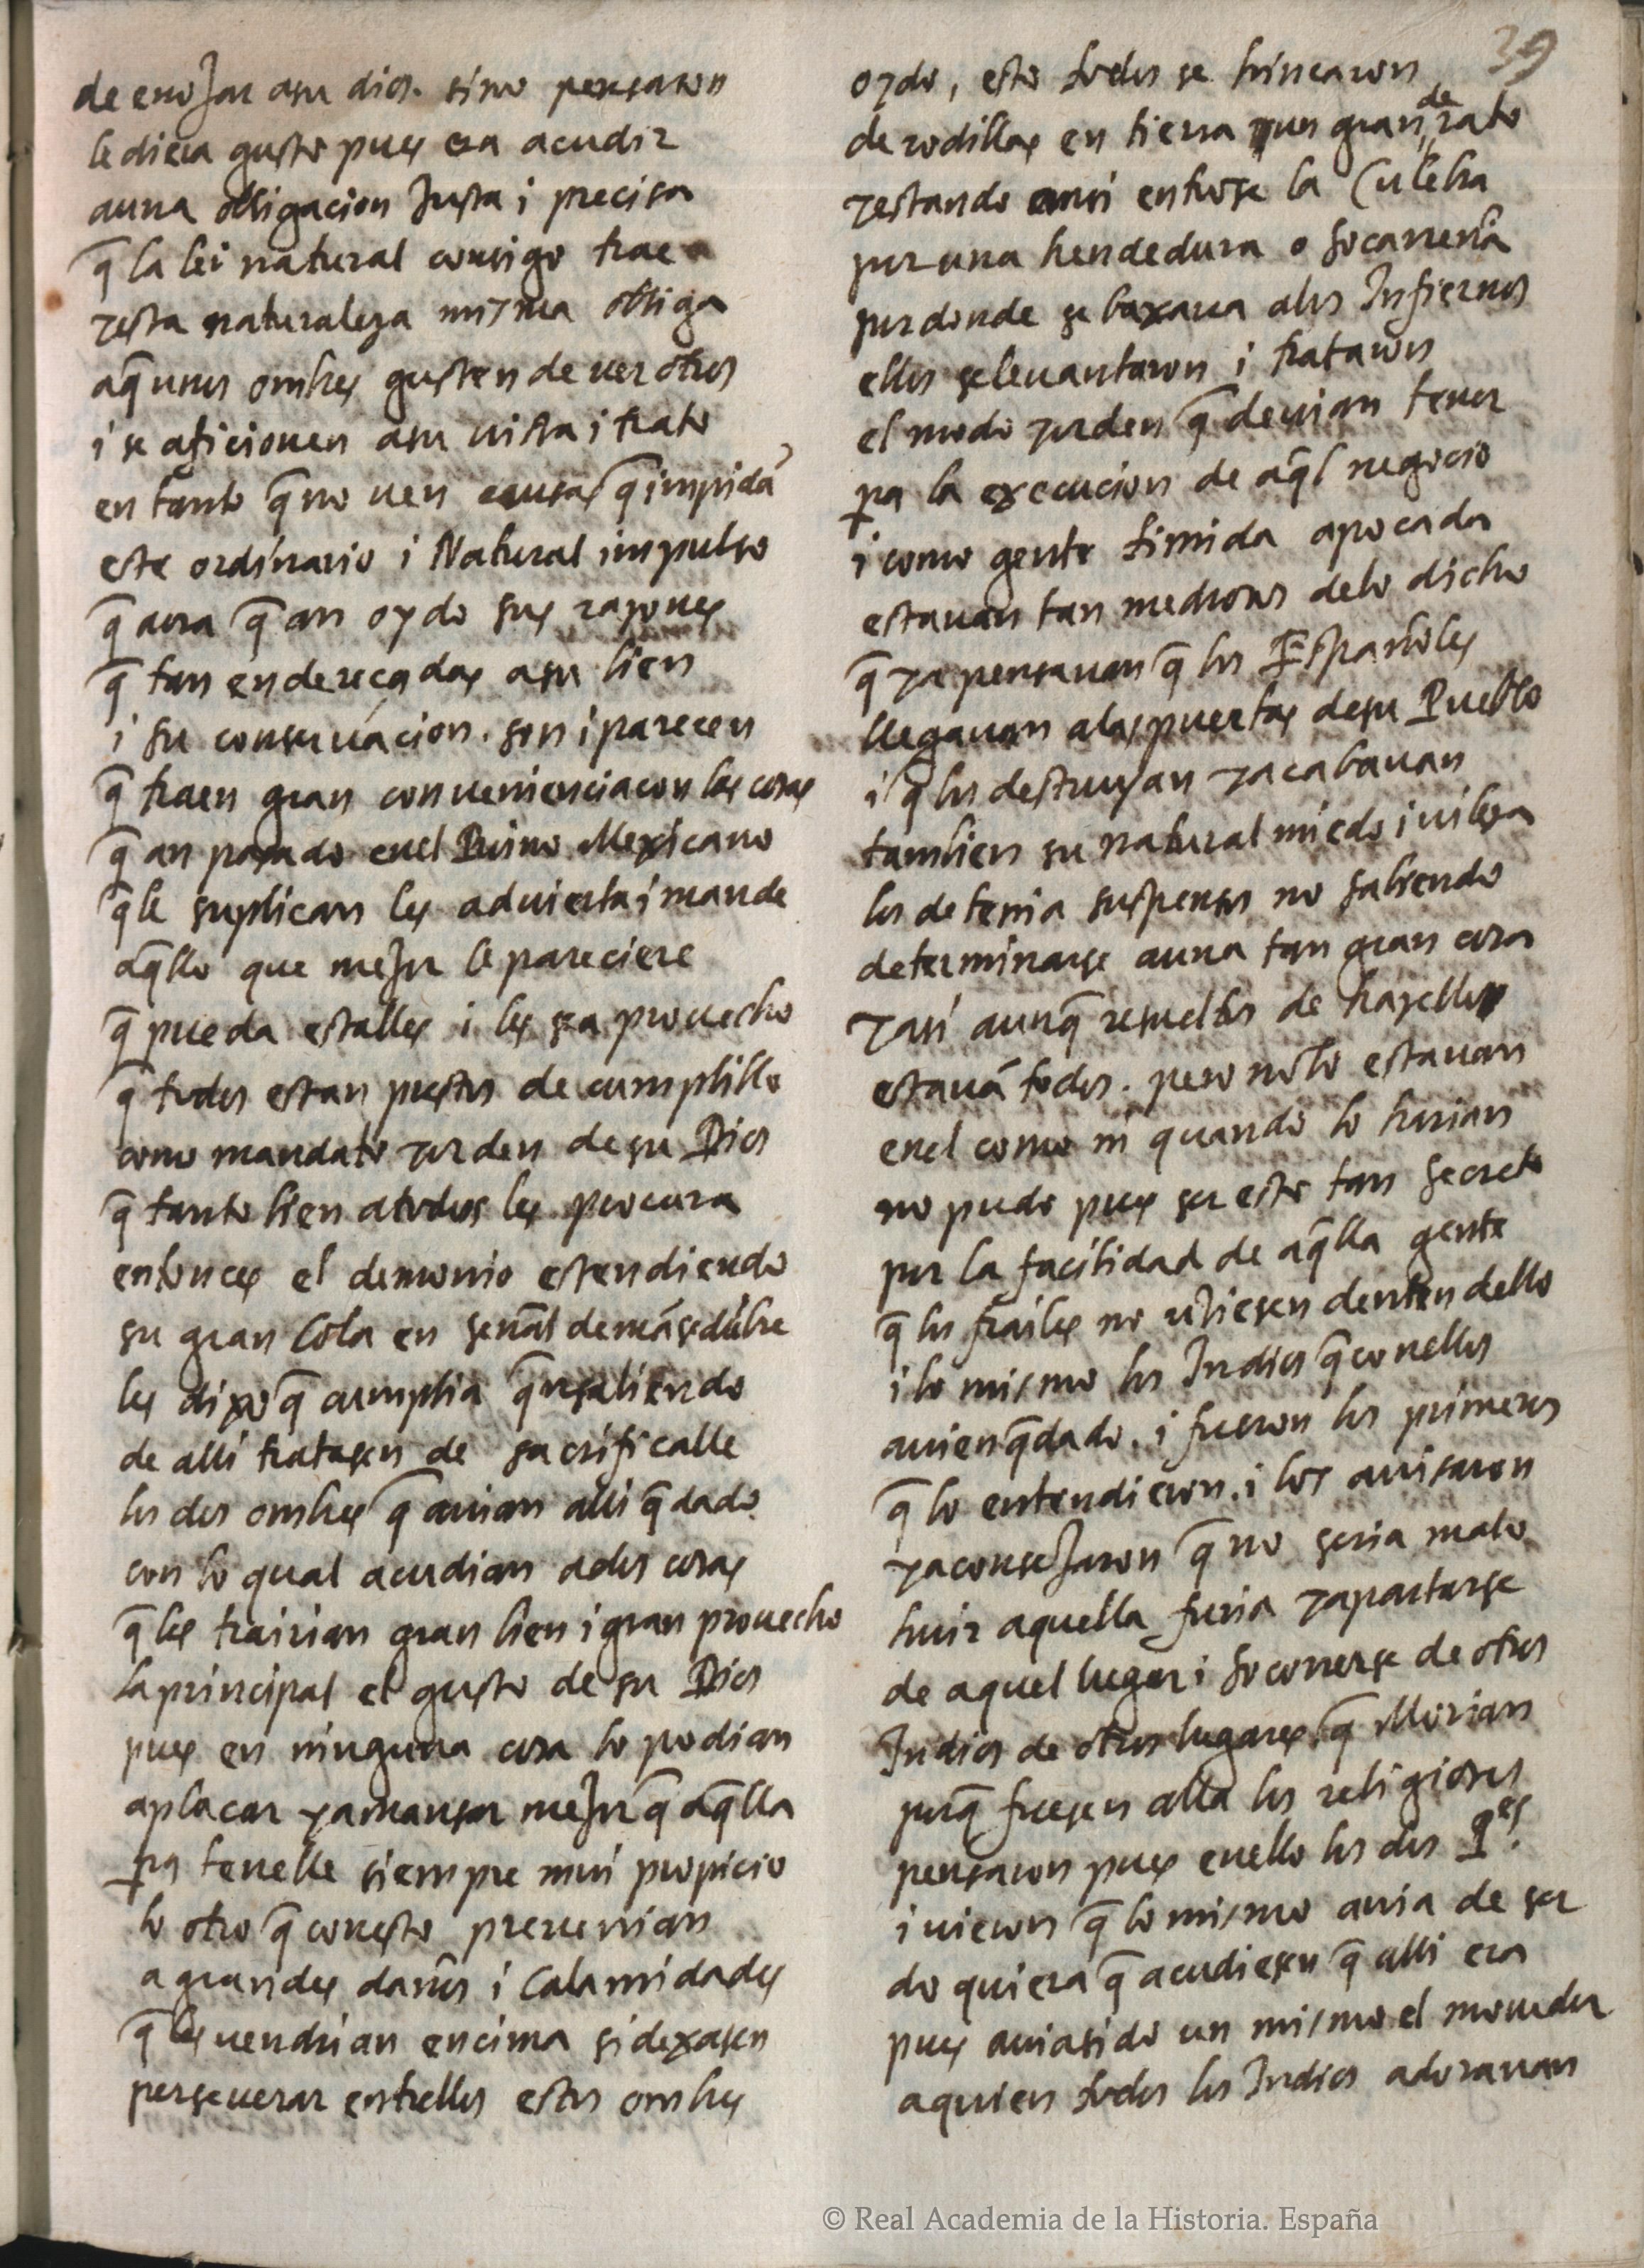 39
de enoJar asu dios. sino pensaron
le diera gusto pues era acudir
auna obligacion Justa i precisa
q̄ la lei natural consigo trae
yesta naturaleza misma obliga
aq̄ unos ombres gusten de uer otros
i se aficionen asu uista i trato
en tanto q̄ no uen causas q̄ impidā
este ordinario i Natural impulso
q̄ aora q̄ an oydo sus razones
q̄ tan enderecadas asu bien
i su conseruacion. son i parecen
q̄ traen gran conueniencia con las cosas
q̄ an pasado enel Reino Mexicano
q̄ le suplican les aduierta i mande
aq̄llo que meJor le pareciere
q̄ pueda estalles i les sea prouecho
q̄ todos estan prestos de cumplillo
como mandato yorden de su Dios
q̄ tanto bien atodos les procura
entonces el demonio estendiendo
su gran Cola en señal demāsedūbre
les dixo q̄ cumplia q̄ ensaliendo
de alli tratasen de sacrificalle
los dos ombres q̄ auian alli q̄dado.
con lo qual acudian ados cosas
q̄ les trairian gran bien i gran prouecho
la principal el gusto de su Dios
pues en ninguna cosa lo podian
aplacar yamansar meJor q̄ aq̄lla
pa tenelle siempre mui propicio
lo otro q̄ conesto preuenian
a grandes daños i Calamidades
q̄ les uendrian encima si dexasen
perseuerar entrellos estos ombres
oydo, esto todos se hincaron
de rodillas en tierra un gran de rato
yestando ansi entrose la Culebra
por una hendedura o socarrena
por donde se baxara alos Infiernos
ellos seleuantaron i trataron
el modo yorden q̄ deuian tener
pa la execucion de aq̄l negocio
i como gente timida apocada
estauan tan medrosos delo dicho
q̄ ya pensauan q̄ los Españoles
llegauan alas puertas desu Pueblo
i q̄ los destruyan yacabauan
tambien su natural miedo i uileza
los detenia suspensos no sabiendo
determinarse auna tan gran cosa
yasi aunq̄ resueltos de hazello
estauā todos. pero nolo estauan
enel como ni quando lo harian
no pudo pues ser esto tan secreto
por la facilidad de aq̄lla gente
q̄ los frailes no ubiesen dentendello
i lo mismo los Indios q̄ conellos
auien q̄dado. i fueron los primeros
q̄ lo entendieron. i los auisaron
yaconseJaron q̄ no seria malo
huir aquella furia yapartarse
de aquel lugar i socorrerse de otros
Indios de otros lugares. q̄ Morian
porq̄ fuesen alla los religiosos
pensaron pues enello los dos Pes.
i uieron q̄ lo mismo auia de ser
do quiera q̄ acudiesen q̄ alli era
pues auia sido un mismo el mouedor
aquien todos los Indios adorauan
© Real Academia de la Historia. España